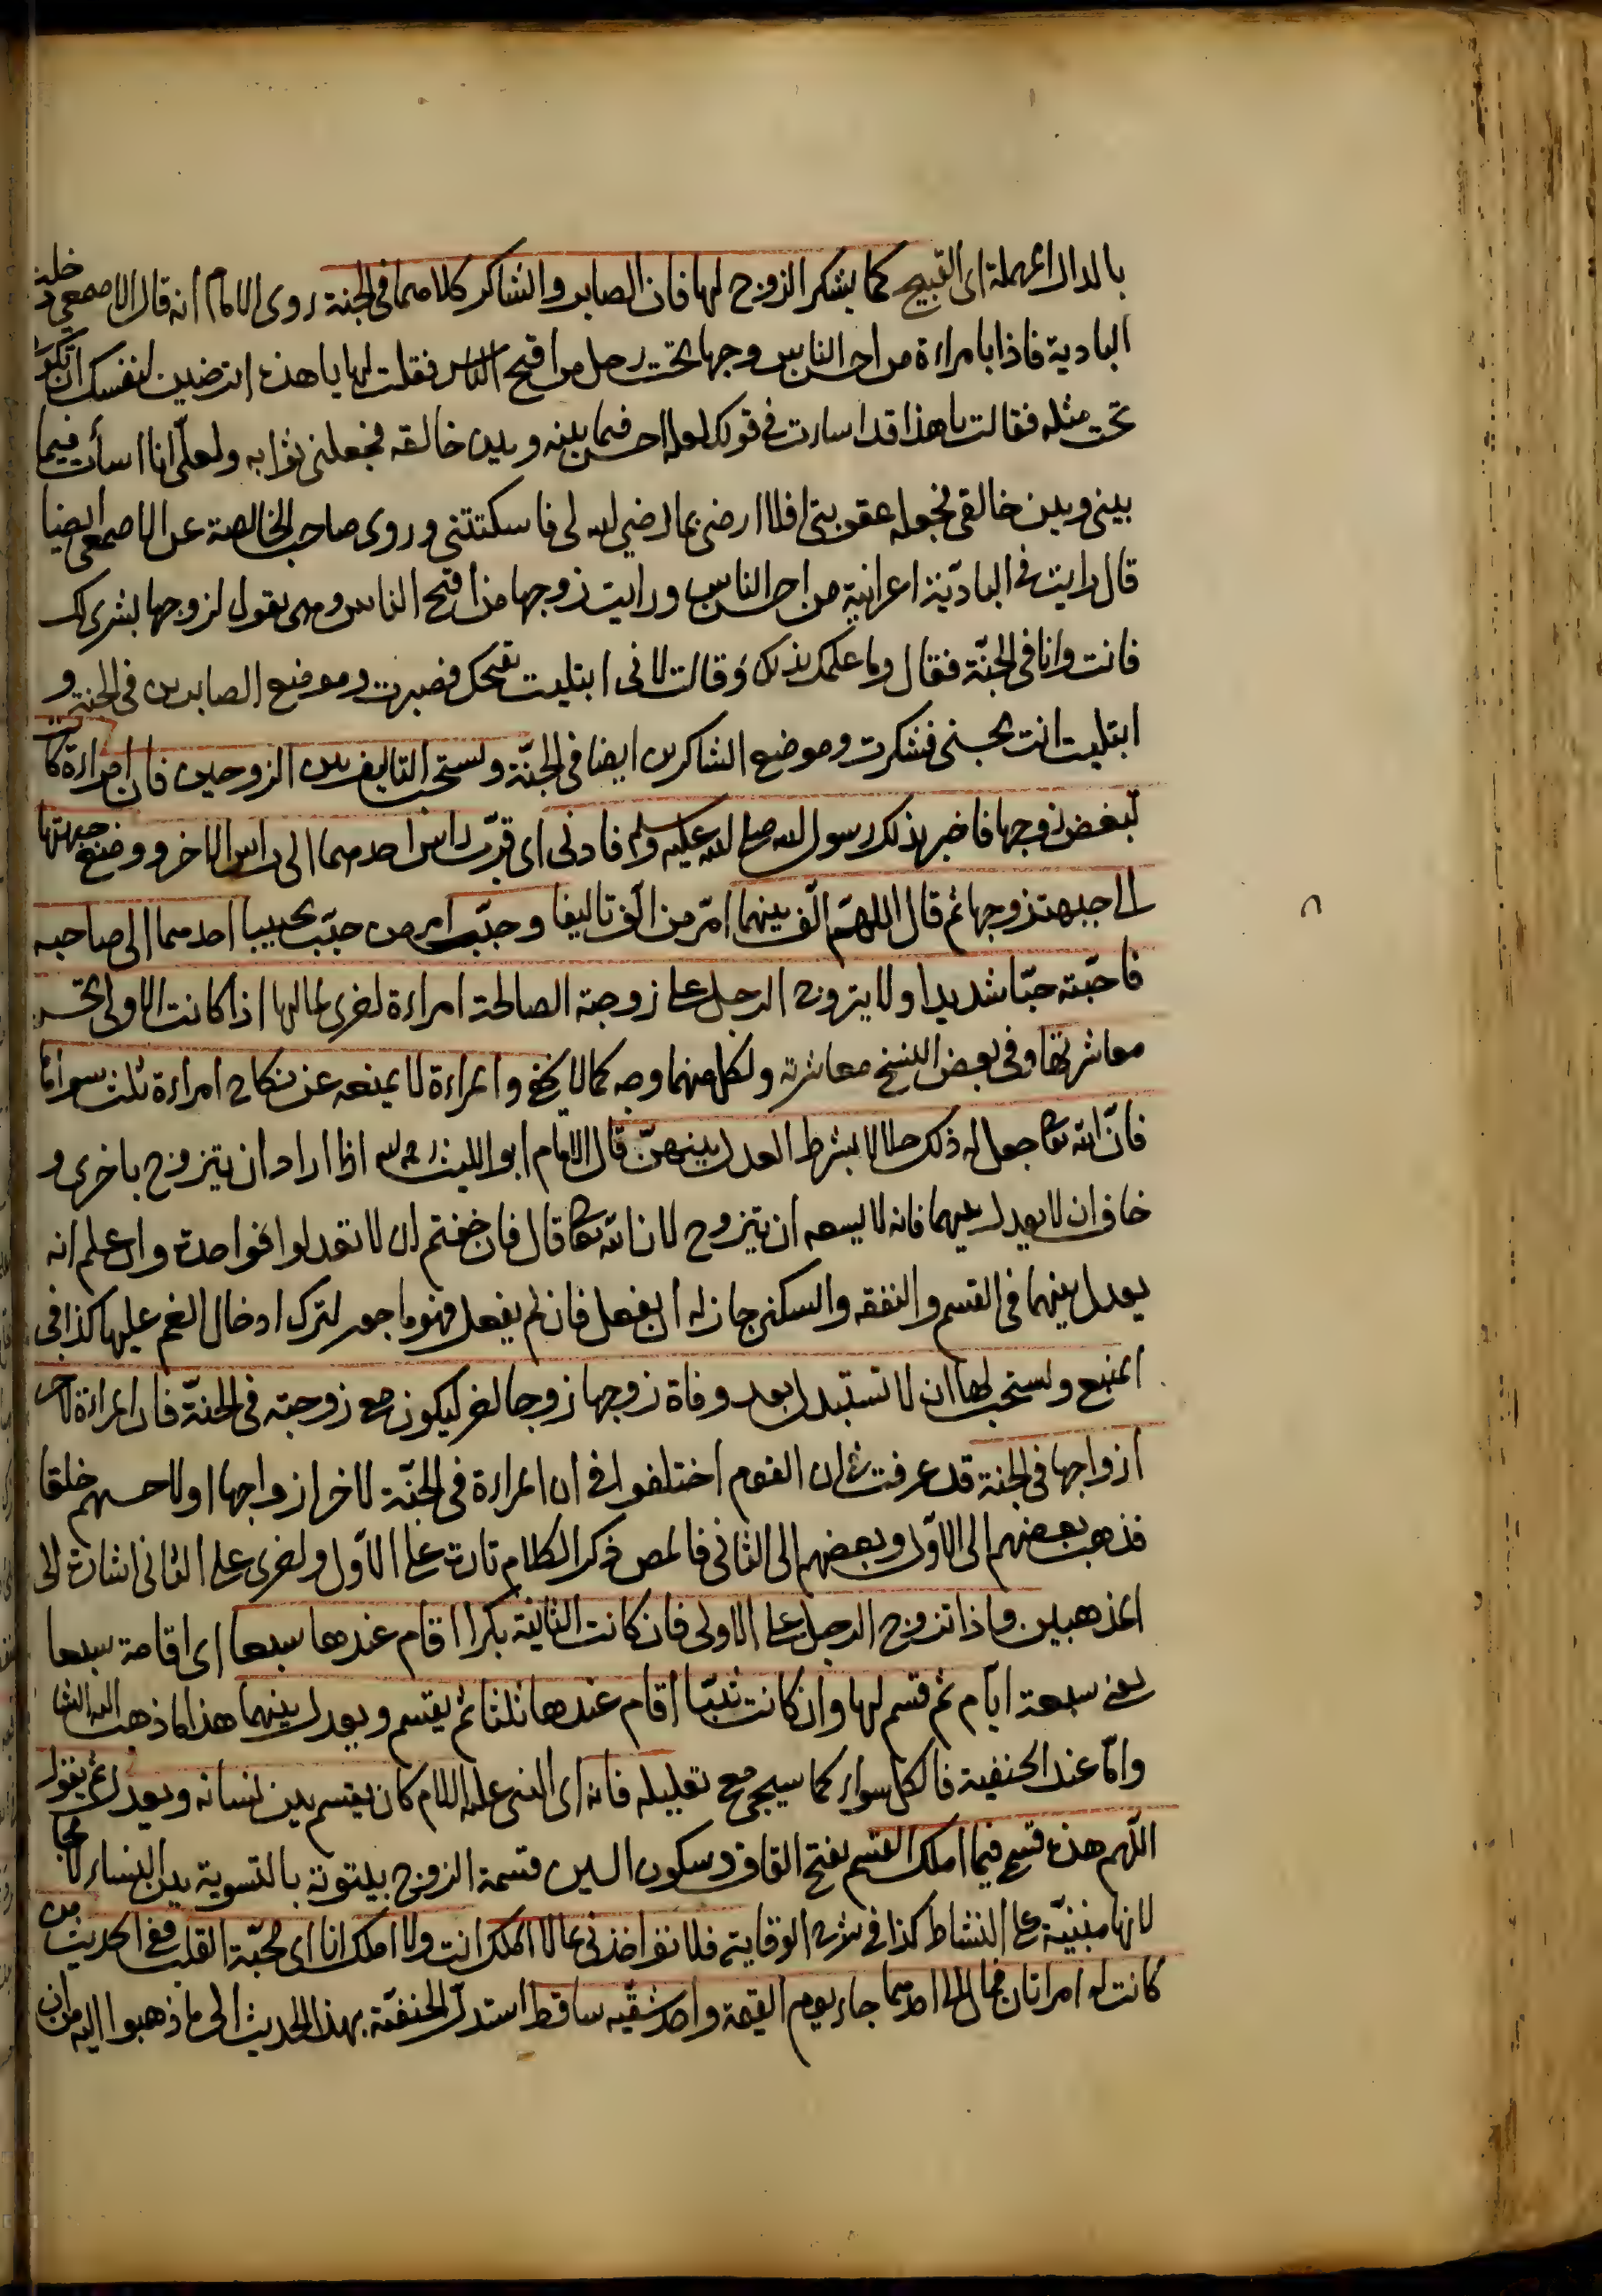 بالدال المهملة اى القبيح كما يشكر الزوج لها فان الصابر والشاكر كلاهما فى الجنة روى الامام انه قال الاصمعى دخلت
البادية فاذا بامراءة من احسن الناس وجها تحت رجل من اقبح الناس فقلت لها يا هذه اترضين لنفسك ان تكون
تحت مثله فقالت يا هذا قد اسارت فى قولك لعله احسن فيما بينه وبين خالقه فجعلنى ثوابه ولعلى انا اسأت فيما
بينى وبين خالقى فجعله عقوبتى افلا ارضى بما رضى الله لى فاسكتتنى وروى صاحب الخالصة عن الاصمعى ايضا
قال رايت فى البادية اعرابية من احسن الناس ورايت زوجها من اقبح الناس وهى تقول لزوجها بشرى لك
فانت وانا فى الجنة فقال وما علمك بذلك وقالت لانى ابتليت بقبحك فصبرت وموضع الصابرين فى الجنة و
ابتليت انت بحسنى فشكرت وموضع الشاكرين ايضا فى الجنة ويستحب التاليف بين الزوجين فان امراءة كانت
تبغض زوجها فاخبر بذلك رسول الله صلى الله عليه وسلم فادنى اى قرب راس احدهما الى راس الاخر ووضع جبهتها
الى جبهة زوجها ثم قال اللهم الف بينهما امر من الف تاليفا وحبب امر من حبب تحبيبا احدهما الى صاحبه
فاحبته حبا شديدا ولا يتزوج الرجل على زوجته الصالحة امراءة اخرى لمالها اذا كانت الاولى تحسن
معاشرتها وفى بعض النسخ معاشرته ولكل منهما وجه كما لا يخفى والمراءة لا يمنعه عن نكاح امراءة ثلث سواها
فان الله تعا جعل له ذلك حلالا بشرط العدل بينهن قال الامام ابو الليث رحمه الله اذا اراد ان يتزوج باخرى و
خاف ان لا يعدل بينهما فانه لا يسعه ان يتزوج لان الله تعا قال فان خفتم ان لا تعدلوا فواحدة وان علم انه
يعدل بينهما فى القسم والنفقه والسكنى جاز له ان يفعل فان لم يفعل فهو ماجور لترك ادخال الغم عليها كذا فى
المنبع ويستحب لها ان لا تستبدل بعد وفاة زوجها زوجا اخر ليكون مع زوجته فى الجنة فان المراءة لاخر
ازواجها فى الجنة قد عرفت ان القوم اختلفوا فى ان المراءة فى الجنة لاخر ازواجها او لاحسنهم خلقا
فذهب بعضهم الى الاول وبعضهم الى الثانى فالمص ذكر الكلام تارة على الاول واخرى على الثانى اشارة الى
المذهبين واذا تزوج الرجل على الاولى فان كانت الثانية بكرا اقام عندها سبعا اى اقامة سبعا
يعنى سبعة ايام ثم قسم لها وان كانت ثيبا اقام عندها ثلثا ثم يقسم ويعدل بينهما هذا ما ذهب اليه الشا
واما عند الحنفية فالكل سواء كما سيجئ مع تعليله فانه اى النبى عليه السلام كان يقسم بين نسائه ويعدل ثم يقول
اللهم هذه قسمى فيما املك القسم بفتح القاف وسكون السين قسمة الزوج بيتوتة بالتسوية بين النساء لا مجا
لانها مبنية على النشاط كذا فى شرح الوقاية فلا تؤاخذنى بما لا املك انت ولا املك انا اى محبة القلب ففى الحديث من
كانت له امراتان فمال الى احدهما جاء يوم القيمة واحد شقيه ساقط استدل الحنفية بهذا الحديث الى ما ذهبوا اليه من ان